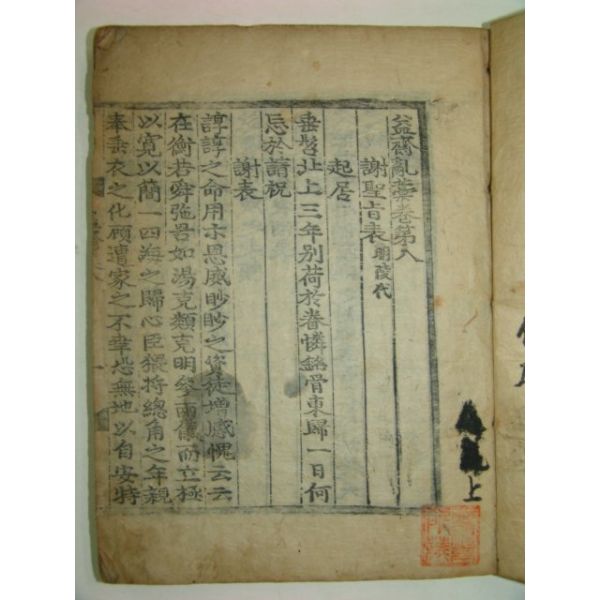 益齋亂藁卷第八
謝聖旨表 明陵代
起居
垂髫北上三年別荷於眷憐銘骨東歸一日何
忘於請祝
謝表
諄諄之命用示恩威眇眇之資徒增感愧云云
在衡若舜弛罟如湯克類克明參兩儀而立極
以寬以簡一四海之歸心臣猥將總角之年親
奉垂衣之化顧遭家之不幸恐無地以自安特
上